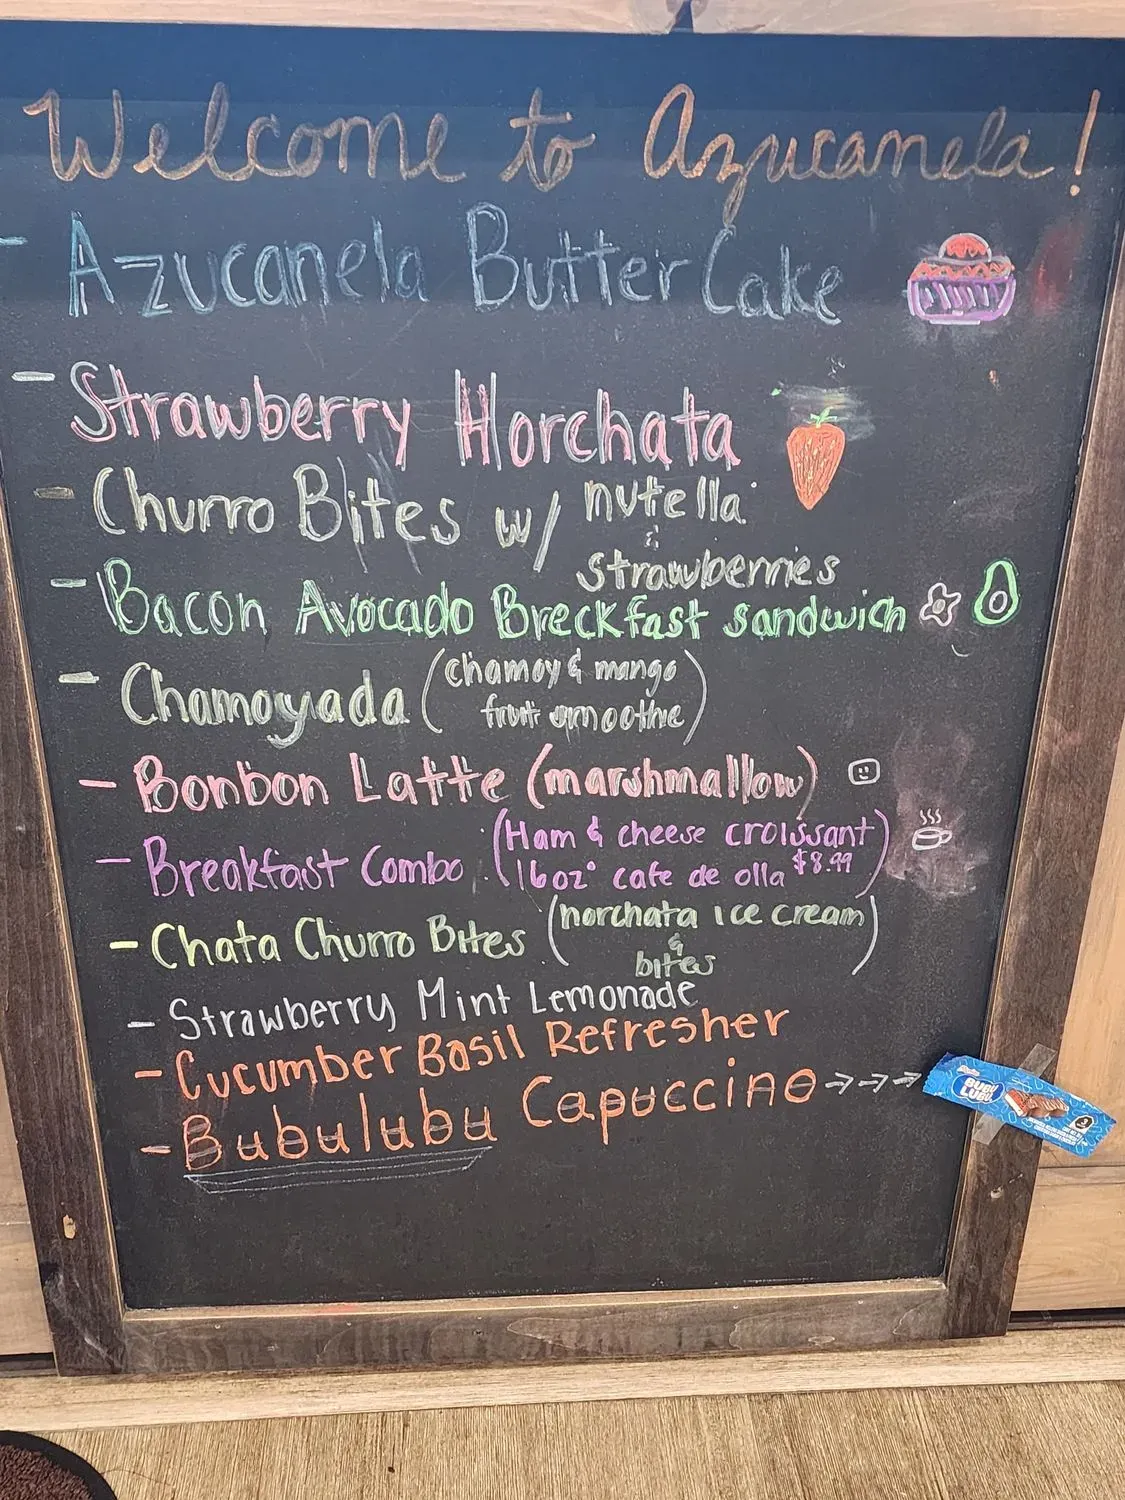 Welcome to Azucanela!
- Azucanela Butter Cake
- Strawberry Horchata
- Churro Bites w/ nutella
&
strawberries
- Bacon Avocado Breckfast sandwich
- Chamoyada (chamoy & mango
fruit smoothie)
- Bonbon Latte (marshmallow)
- Breakfast Combo (Ham & cheese croissant
16oz° cafe de olla $8.99)
- Chata Churro Bites (horchata ice cream
&
bites)
- Strawberry Mint Lemonade
- Cucumber Basil Refresher
- Bubulubu Capuccino →→→
BUBU
LUBU